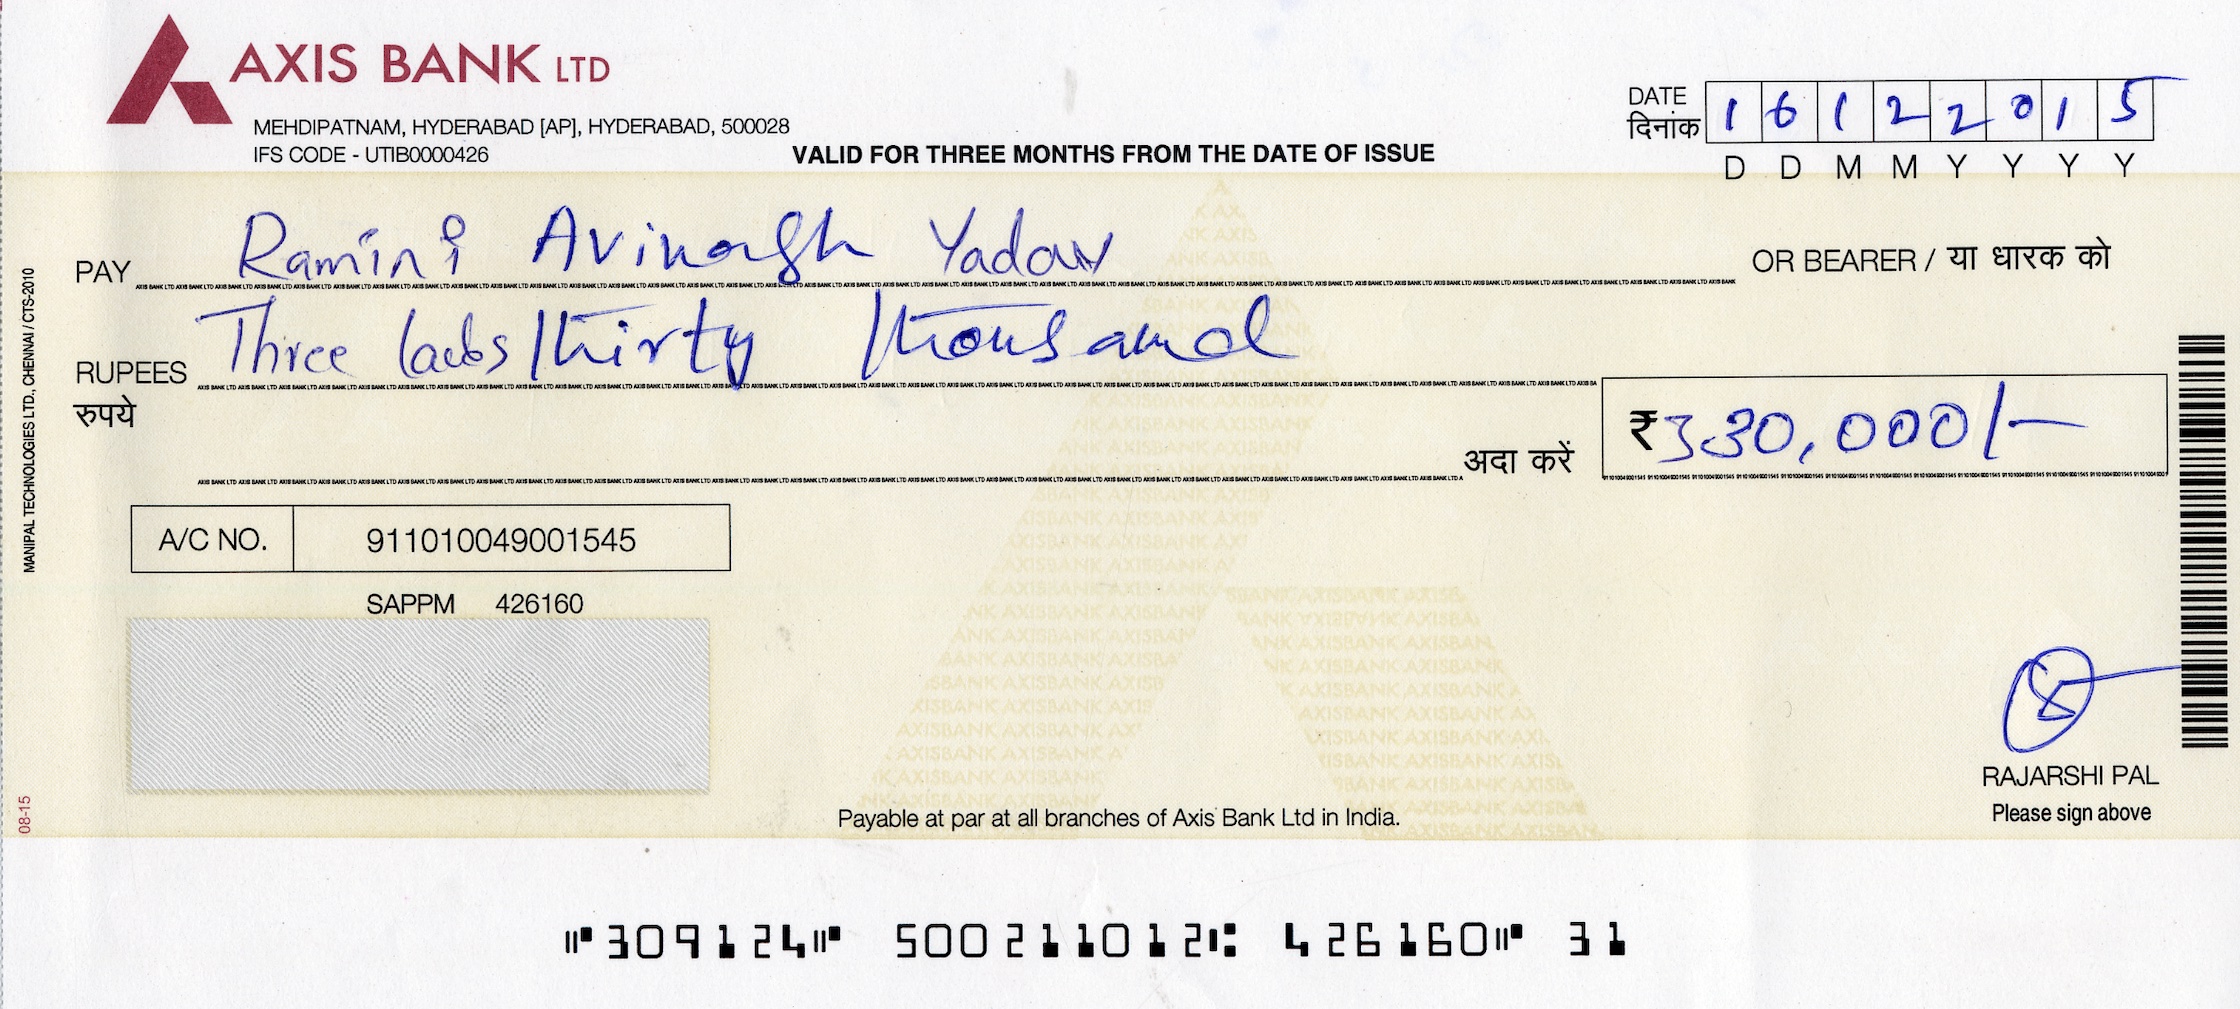 AXIS BANK LTD
MEHDIPATNAM, HYDERABAD [AP], HYDERABAD, 500028
IFS CODE - UTIB0000426
VALID FOR THREE MONTHS FROM THE DATE OF ISSUE
DATE 1 6 1 2 2 0 1 5
दिनांक
D D M M Y Y Y Y
PAY Ramini Avinash Yadav OR BEARER / या धारक को
RUPEES Three lacks thirty thousand
रुपये
अदा करें ₹ 3,30,000/-
A/C NO. 911010049001545
SAPPM 426160
VOID
RAJARSHI PAL
Please sign above
Payable at par at all branches of Axis Bank Ltd in India.
MANIPAL TECHNOLOGIES LTD., CHENNAI / CTS-2010
08-15
⑈309124⑈ 500211012⑆ 426160⑈ 31